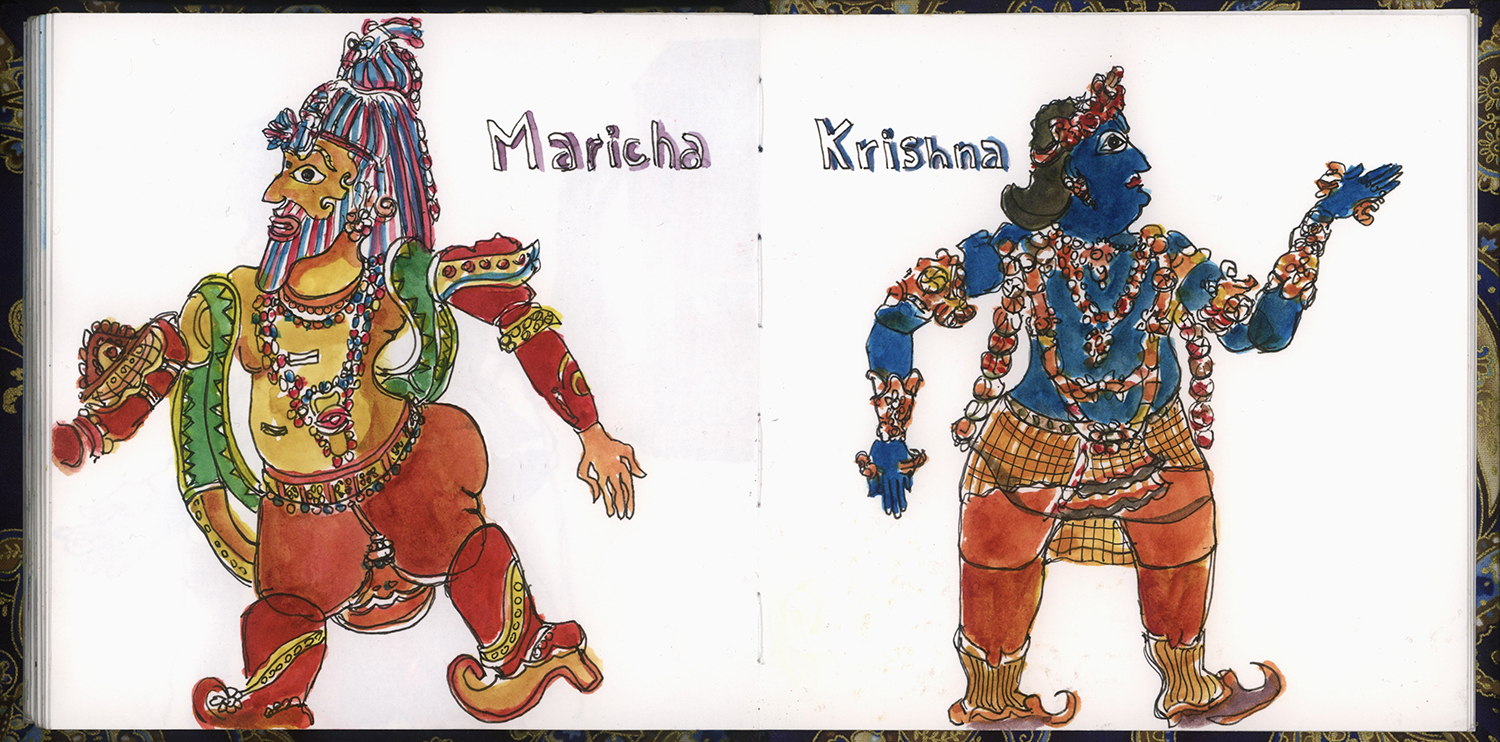 Maricha
Krishna